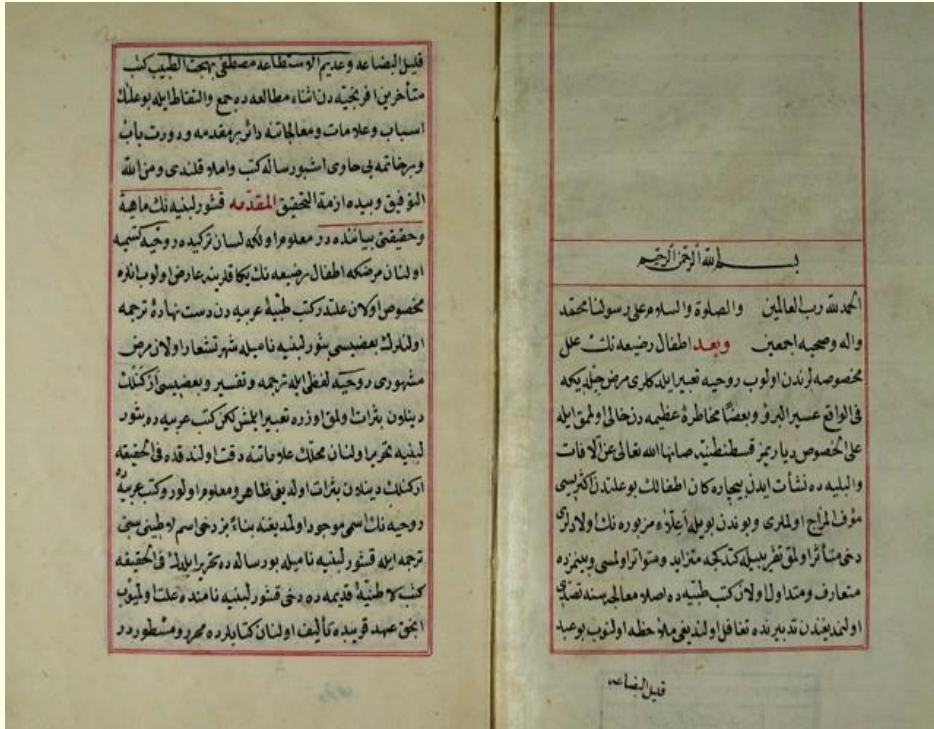 بسم الله الرحمن الرحيم
الحمد لله رب العالمين والصلوة والسلام على رسولنا محمد
واله وصحبه اجمعين وبعد اطفال رضيعه نك علل
مخصوصه لرندن اولوب روحيه تعبير ايله كلرى مرض جبله يكه
فى الواقع عسير البرؤ وبعضا مخاطرۀ عظيمه دن خالى اولمق ايله
على الخصوص ديار يمز قسطنطنيه صانها الله تعالى عن الافات
والبليه ده نشأت ايدن بيچاره كان اطفالك بو علتدن اكثريسى
مؤف المزاج اولملرى وبوندن بويله اعلاء مزبوره نك ولادلرى
دخى متأثر اولمق تقريبيله كتدكجه متزايد ومتواتر اولمسى وبينمزده
متعارف ومتداول اولان كتب طبيه ده اصلا معالجه سنه تصدى
اولنمديغندن تدبيرنده تغافل اولنديغى ملاحظه اولنوب بو عبد
قليل البضاعه
قليل البضاعه وعديم الاستطاعه مصطفى بهجت الطبيب كتب
متأخرين افرنجيه دن اثناء مطالعه ده جمع والتقاط ايله بو علتك
اسباب وعلامات ومعالجاتنه دائر بر مقدمه ودورت باب
وبر خاتمه يى حاوى اشبو رساله كتب واملا قلندى ومن الله
التوفيق وبيده ازمة التحقيق المقدمه قشور لبنيه نك ماهية
وحقيقتى بياننده در معلوم اوله كه لسان تركيده روحيه تسميه
اولنان مرضكه اطفال رضيعه نك يكاقلرينه عارض اولوب انلره
مخصوص اولان علتدر كتب طبيۀ عربيه دن دست نهادۀ ترجمه
اولنلرك بعضيسى بثور لبنيه ناميله شهرتشعار اولان مرض
مشهورى روحيه لفظى ايله ترجمه وتفسير وبعضيسى اركنلك
دينلون بثرات اولمق اوزره تعبير ايلمش لكن كتب عربيه ده بثور
لبنيه تحرير اولنان محلك علاماتنه دقت اولندقده فى الحقيقه
اركنلك دينلون بثرات اولديغى ظاهر ومعلوم اولور وكتب عربيه ده
روحيه نك اسمى موجود اولمديغنه بناء بز دخى اسم لاطينى سنى
ترجمه ايله قشور لبنيه ناميله بو رساله ده تحرير ايلدك فى الحقيقه
كتب لاطنيۀ قديمه ده دخى قشور لبنيه نامنده علت اولميوب
انجق عهد قريبده تأليف اولنان كتابلرده محرر ومسطور در